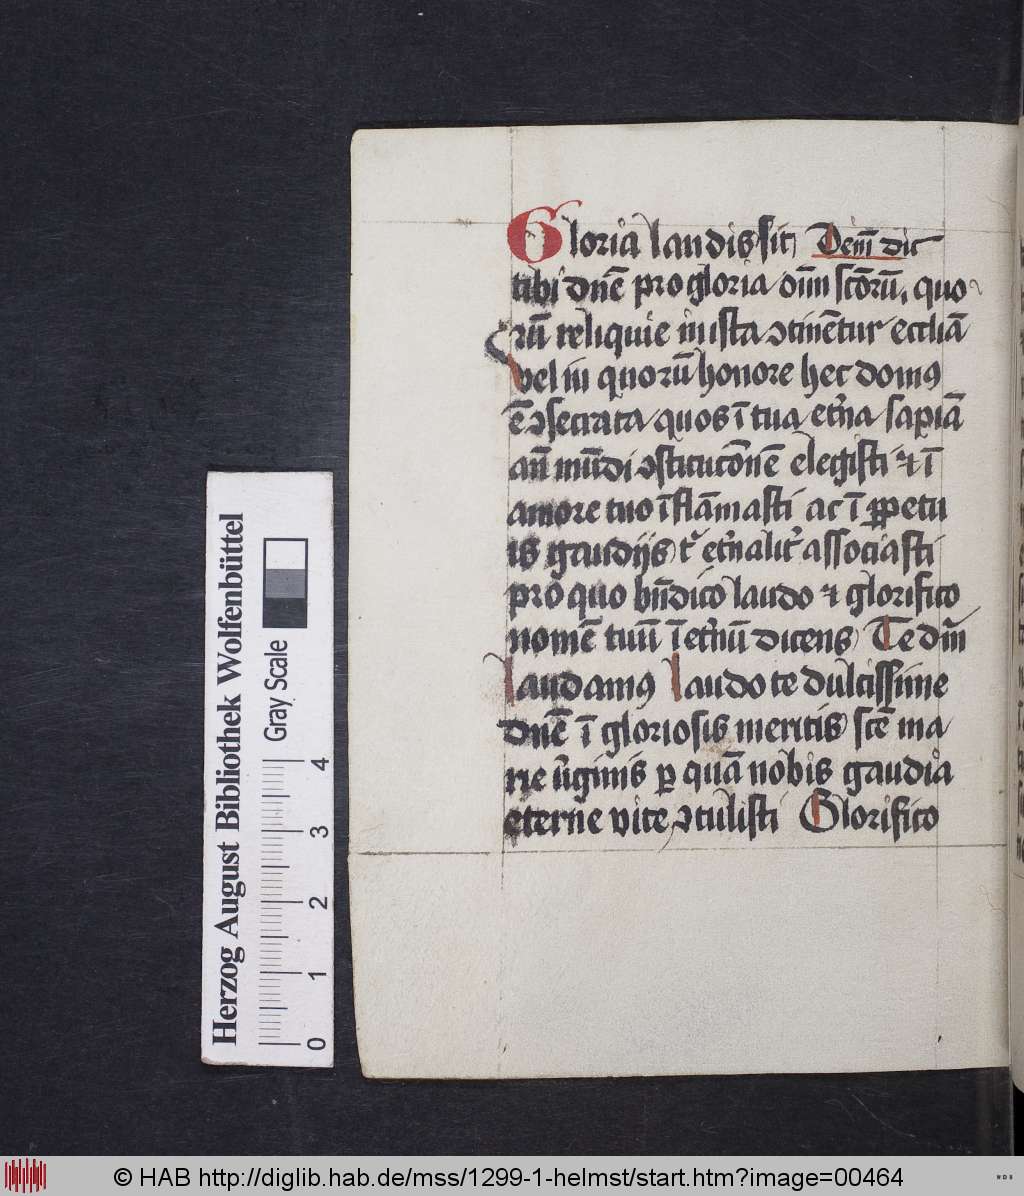 Gloria laudis sit Deinde dic
tibi dnē pro gloria om̄ scōrū, quo
rū reliquie in ista ↄtinētur eccliā
vel in quorū honore hec domus
ē ↄsecrata quos ī tua et̄na sapiā
an̄ mūdi ↄstitucōnē elegisti ⁊ ī
amore tuo īflāmasti ac ī ꝑpetu
is gaudijs t᷑ et̄nalit᷑ associasti
pro quo bn̄dico laudo ⁊ glorifico
nomē tuū īet̄nū dicens Te dm̄
laudamus laudo te dulcissime
dnē ī gloriosis meritis scē ma
rie v̄ginis ꝑ quā nobis gaudia
eterne vite ↄtulisti Glorifico
Herzog August Bibliothek Wolfenbüttel
Gray Scale
0 1 2 3 4
© HAB http://diglib.hab.de/mss/1299-1-helmst/start.htm?image=00464